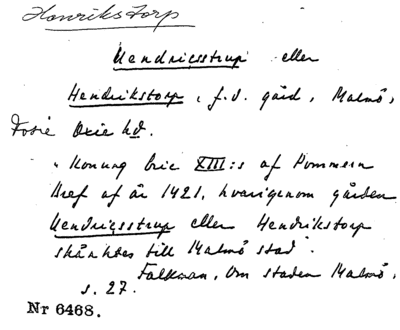 Henrikstorp
Hendricsstrup eller
Hendrikstorp, f.d. gård, Malmö,
Fosie Oxie hd.
"Konung Eric XIII:s af Pommern
Bref af år 1421, hvarigenom gården
Hendricsstrup eller Hendrikstorp
skänktes till Malmö stad.
Falkman, Om staden Malmö,
s. 27.
Nr 6468.